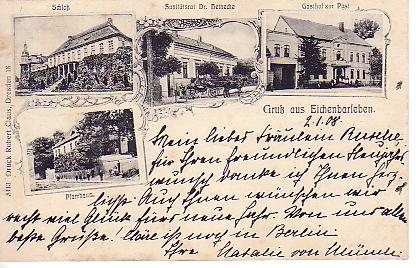 Schloß
Sanitätsrat Dr. Heinecke
Gasthof zur Post
Gruß aus Eichenbarleben.
2.1.08.
Mein liebes Fräulein
für Ihren freundlichen
wunsch danke ich Ihnen herz-
Pfarrhaus.
lichst. Auch Ihnen wünschen wir
recht viel Glück fürs neue Jahr. Von uns allen
beste Grüße! ist noch in Berlin
Ihre Natalie von
Druck Robert Claus, Dresden 16